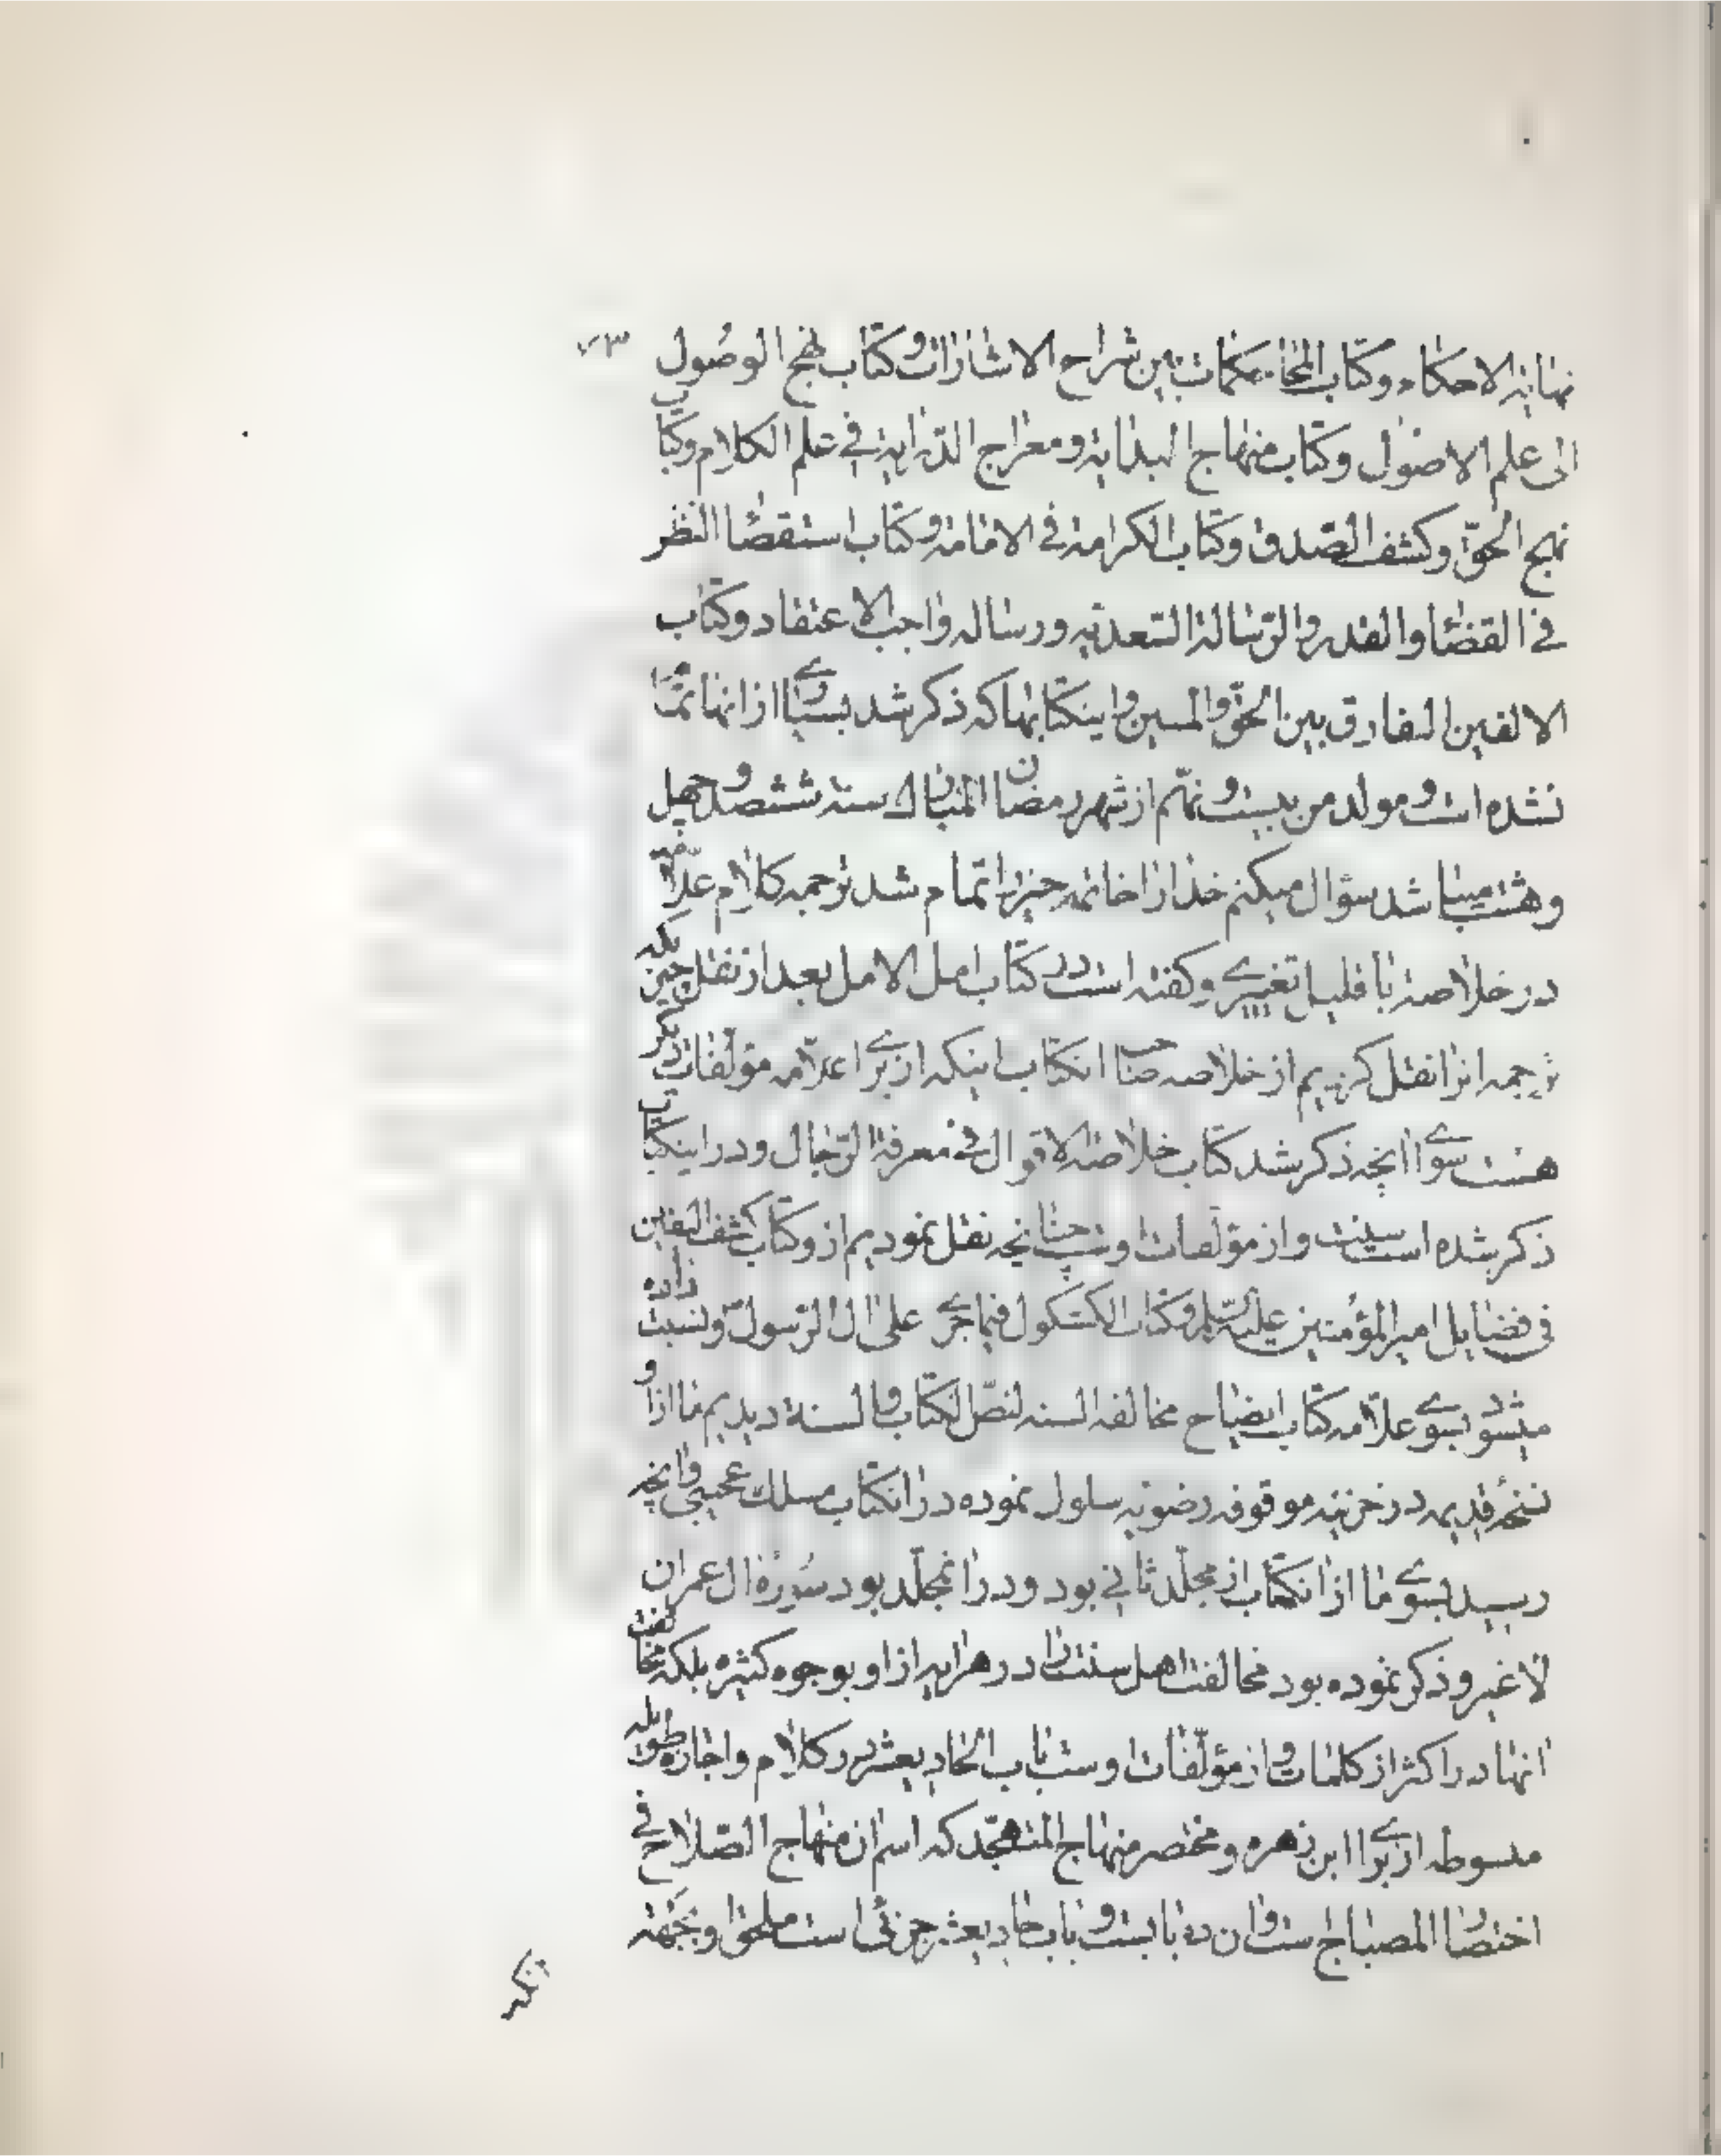 ۷۳
نهایة الاحکام وکتاب المحاکمات بین شراح الاشارات وکتاب نهج الوصول
الی علم الاصول وکتاب منهاج الهدایة ومعراج الدرایة فی علم الکلام وکتاب
نهج الحق وکشف الصدق وکتاب الکرامة فی الامامة وکتاب استقصا النظر
فی القضا والقدر والرسالة السعدیه ورساله واجب الاعتقاد وکتاب
الالفین الفارق بین الحق والمین واینکتابها که ذکر شد بسیاری از انها تمام
نشده است ومولد من بیست ونهم از شهر رمضان المبارک سنه ششصد وچهل
وهشت میباشد سؤال میکنم خدا را خاتمه خیر را تمام شد ترجمه کلام علّامه
در خلاصه با قلیل تغییری وگفته است در کتاب امل الامل بعد از نقل چیزیکه
ترجمه انرا نقل کردیم از خلاصه صاحب انکتاب اینکه از برای علّامه مؤلفات دیگر
هست سوای انچه ذکر شد کتاب خلاصة الاقوال فی معرفة الرّجال ودر اینکتاب
ذکر شده است واز مؤلفات اوست چنانچه نقل نمودیم از وکتاب کشف الیقین
فی فضایل امیر المؤمنین علیه السّلم وکتاب الکشکول فیما جری علی ال الرّسول ونسبت داده
میشود بسوی علّامه کتاب ایضاح مخالفه السنه لنصّ الکتاب والسنة دیدیم ما از او
نسخۀ قدیمه در خزینه موقوفه رضویه سلوک نموده در انکتاب مسلک عجیبی وانچه
رسید بسوی ما از انکتاب از مجلّد ثانی بود ودر انمجلّد بود سُورۀ ال عمران
لا غیر وذکر نموده بود مخالفت اهل سنت را در هر ایه از او بوجوه کثیره بلکه مخالفت
انها در اکثر از کلمات واز مؤلّفات اوست باب الحادیعشر در کلام واجازه طویله
مبسوطه از برای ابن زهره ومختصر منهاج المتهجّد که اسم ان منهاج الصّلاح فی
اختصار المصباح ست وان ده بابست وباب حادیعشر جزئی است ملحق وبجهته